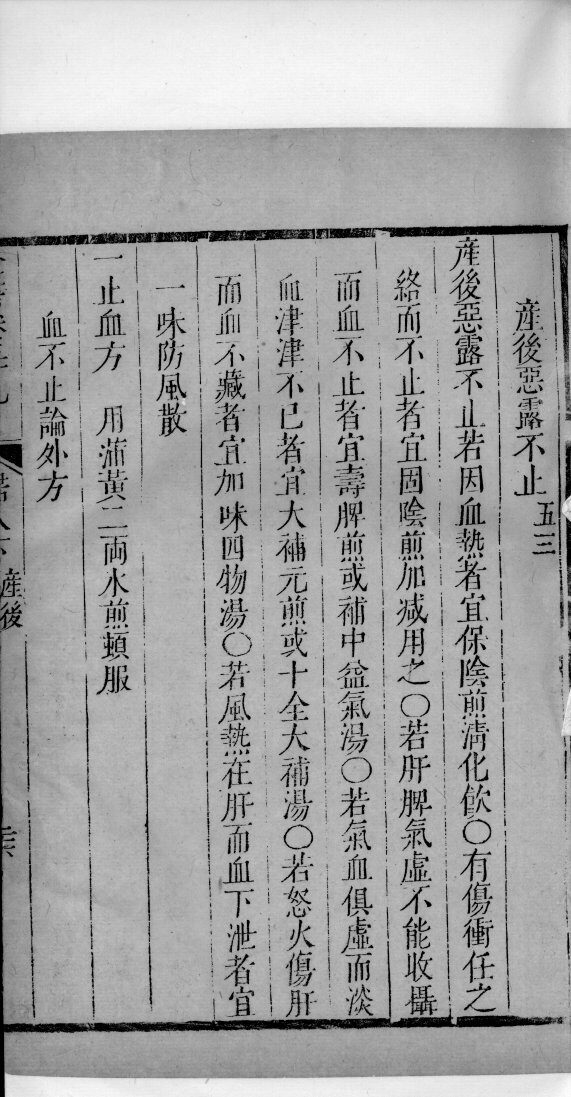 產後惡露不止五三
產後惡露不止若因血熱者宜保陰煎清化飲〇有傷衝任之
絡而不止者宜固陰煎加减用之〇若肝脾氣虛不能收攝
而血不止者宜壽脾煎或補中益氣湯〇若氣血俱虛而淡
血津津不已者宜大補元煎或十全大補湯〇若怒火傷肝
而血不藏者宜加味四物湯〇若風熱在肝而血下泄者宜
一味防風散
一止血方　用蒲黃二兩水煎頓服
血不止論外方
產後